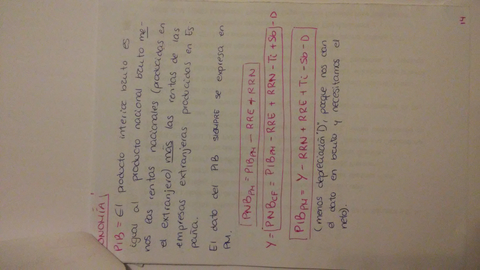 ONOMÍA
PIB = El producto interior bruto es
igual al producto nacional bruto me-
nos las rentas nacionales (producidas en
el extranjero) más las rentas de las
empresas extranjeras producidas en Es
paña.
El dato del PIB siempre se expresa en
PM.
PNBpm = PIBpm - RRE + RRN
Y = PNBcf = PIBpm - RRE + RRN - Ti + Sb - D
PIBpm = Y - RRN + RRE + Ti - Sb - D
(menos depreciación "D", porque nos dan
el dato en bruto y necesitamos el
neto).
14